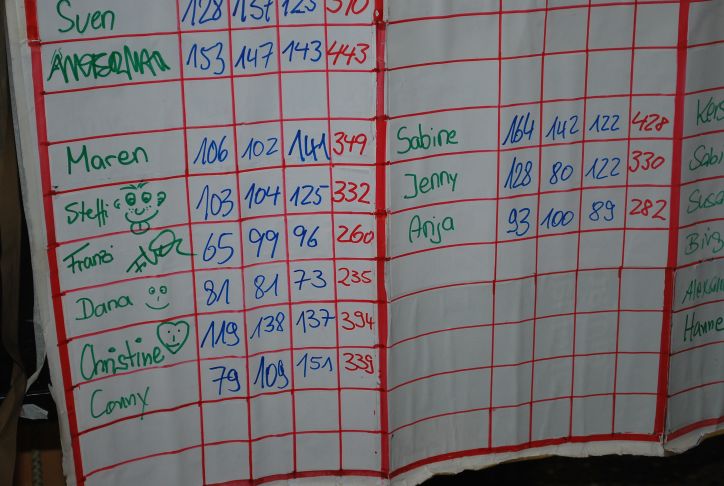 Sven 128
ANGERMAN 153 147 143 443
Maren 106 102 141 349
Steffi 103 104 125 332
Franzi 65 99 96 260
Dana 81 81 73 235
Christine 119 138 137 394
Conny 79 109 151 339
Sabine 164 142 122 428
Jenny 128 80 122 330
Anja 93 100 89 282
Kers
Sabi
Susa
Hanne